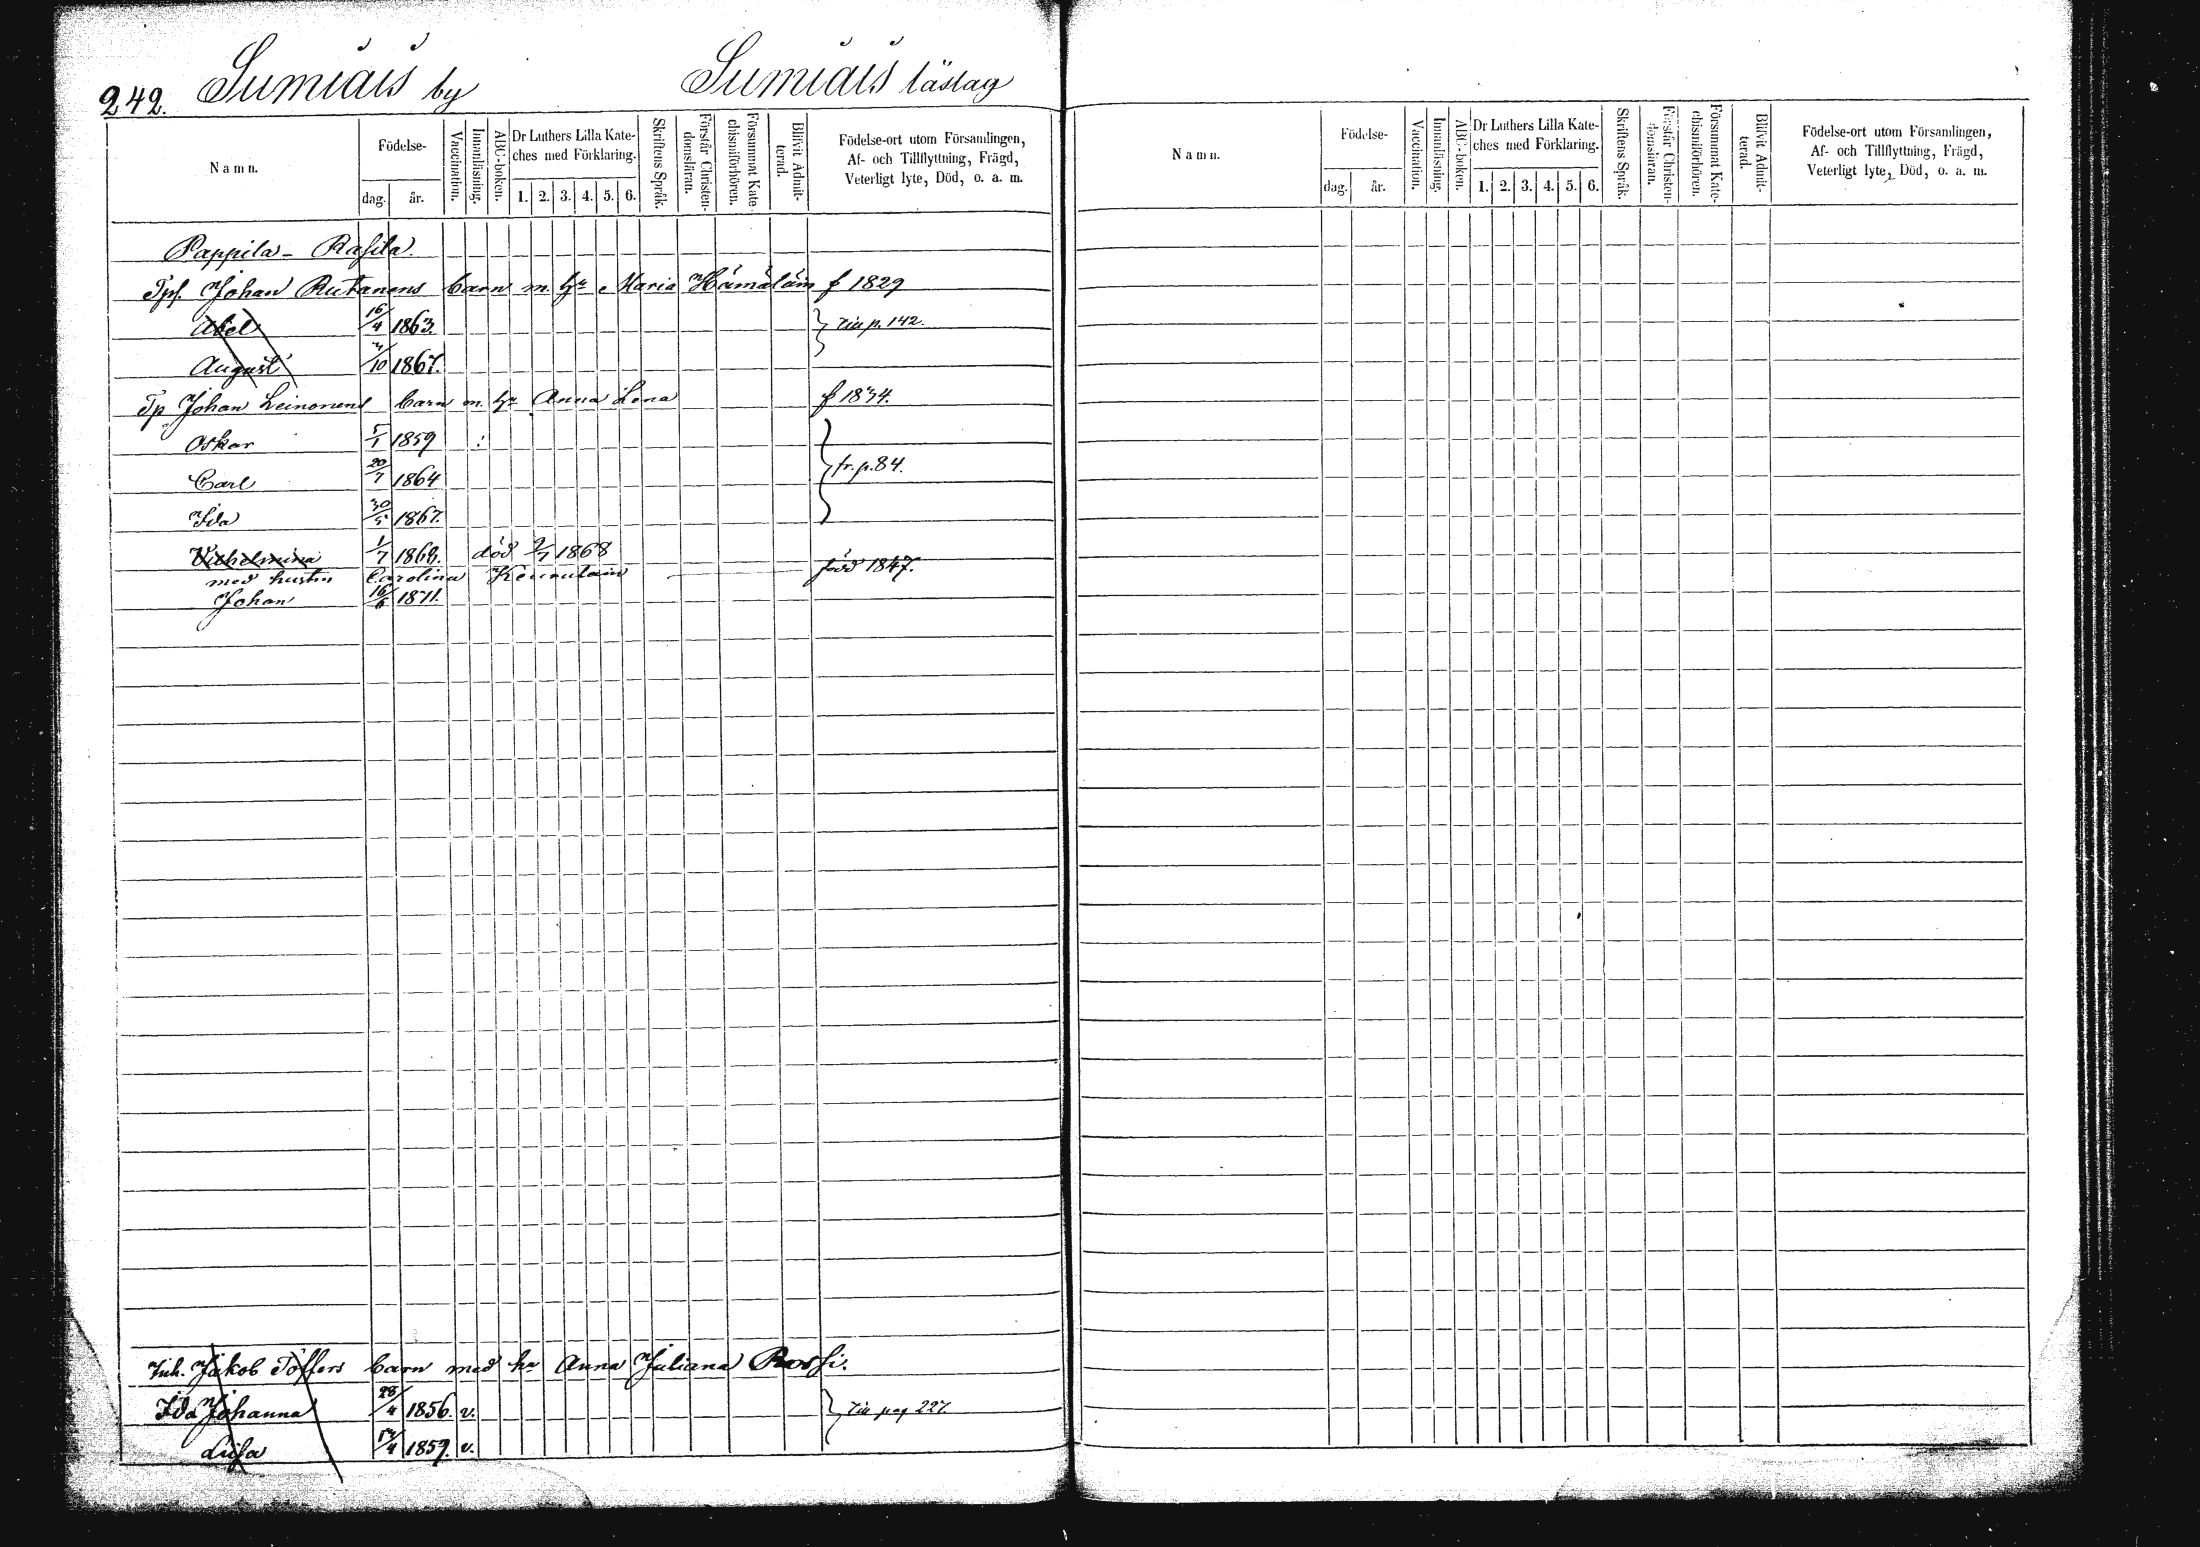 242. Sumiais by Sumiais läslag
Namn. Födelse- dag. år. Vaccination. Innanläsning. ABC-boken. Dr Luthers Lilla Kateches med Förklaring. 1. 2. 3. 4. 5. 6. Skriftens Språk. Förstår Christendomsläran. Försummat Katechismiförhören. Blifvit Admitterad. Födelse-ort utom Församlingen, Af- och Tillflyttning, Frägd, Veterligt lyte, Död, o. a. m.
Pappila - Rasila.
Tpf. Johan Rutanens barn m. hu Maria Hämäläin f 1829
Abel 16/4 1863. } Till p. 142.
August /10 1867.
Tp Johan Leinonens barn m. hu Anna Lena f 1834.
Oskar 5/1 1859 } fr. p. 84.
Carl 20/7 1864
Ida 30/5 1867.
Vilhelmina 1/7 1868. död 2/7 1868
med hustru Carolina född 1847.
Johan 16/6 1871.
Inh. Jakob Toffers barn med hu Anna Juliana Rossi.
Ida Johanna 28/4 1856. v. } Till pag 227.
Lisa /4 1859. v.
Namn. Födelse- dag. år. Vaccination. Innanläsning. ABC-boken. Dr Luthers Lilla Kateches med Förklaring. 1. 2. 3. 4. 5. 6. Skriftens Språk. Förstår Christendomsläran. Försummat Katechismiförhören. Blifvit Admitterad. Födelse-ort utom Församlingen, Af- och Tillflyttning, Frägd, Veterligt lyte, Död, o. a. m.